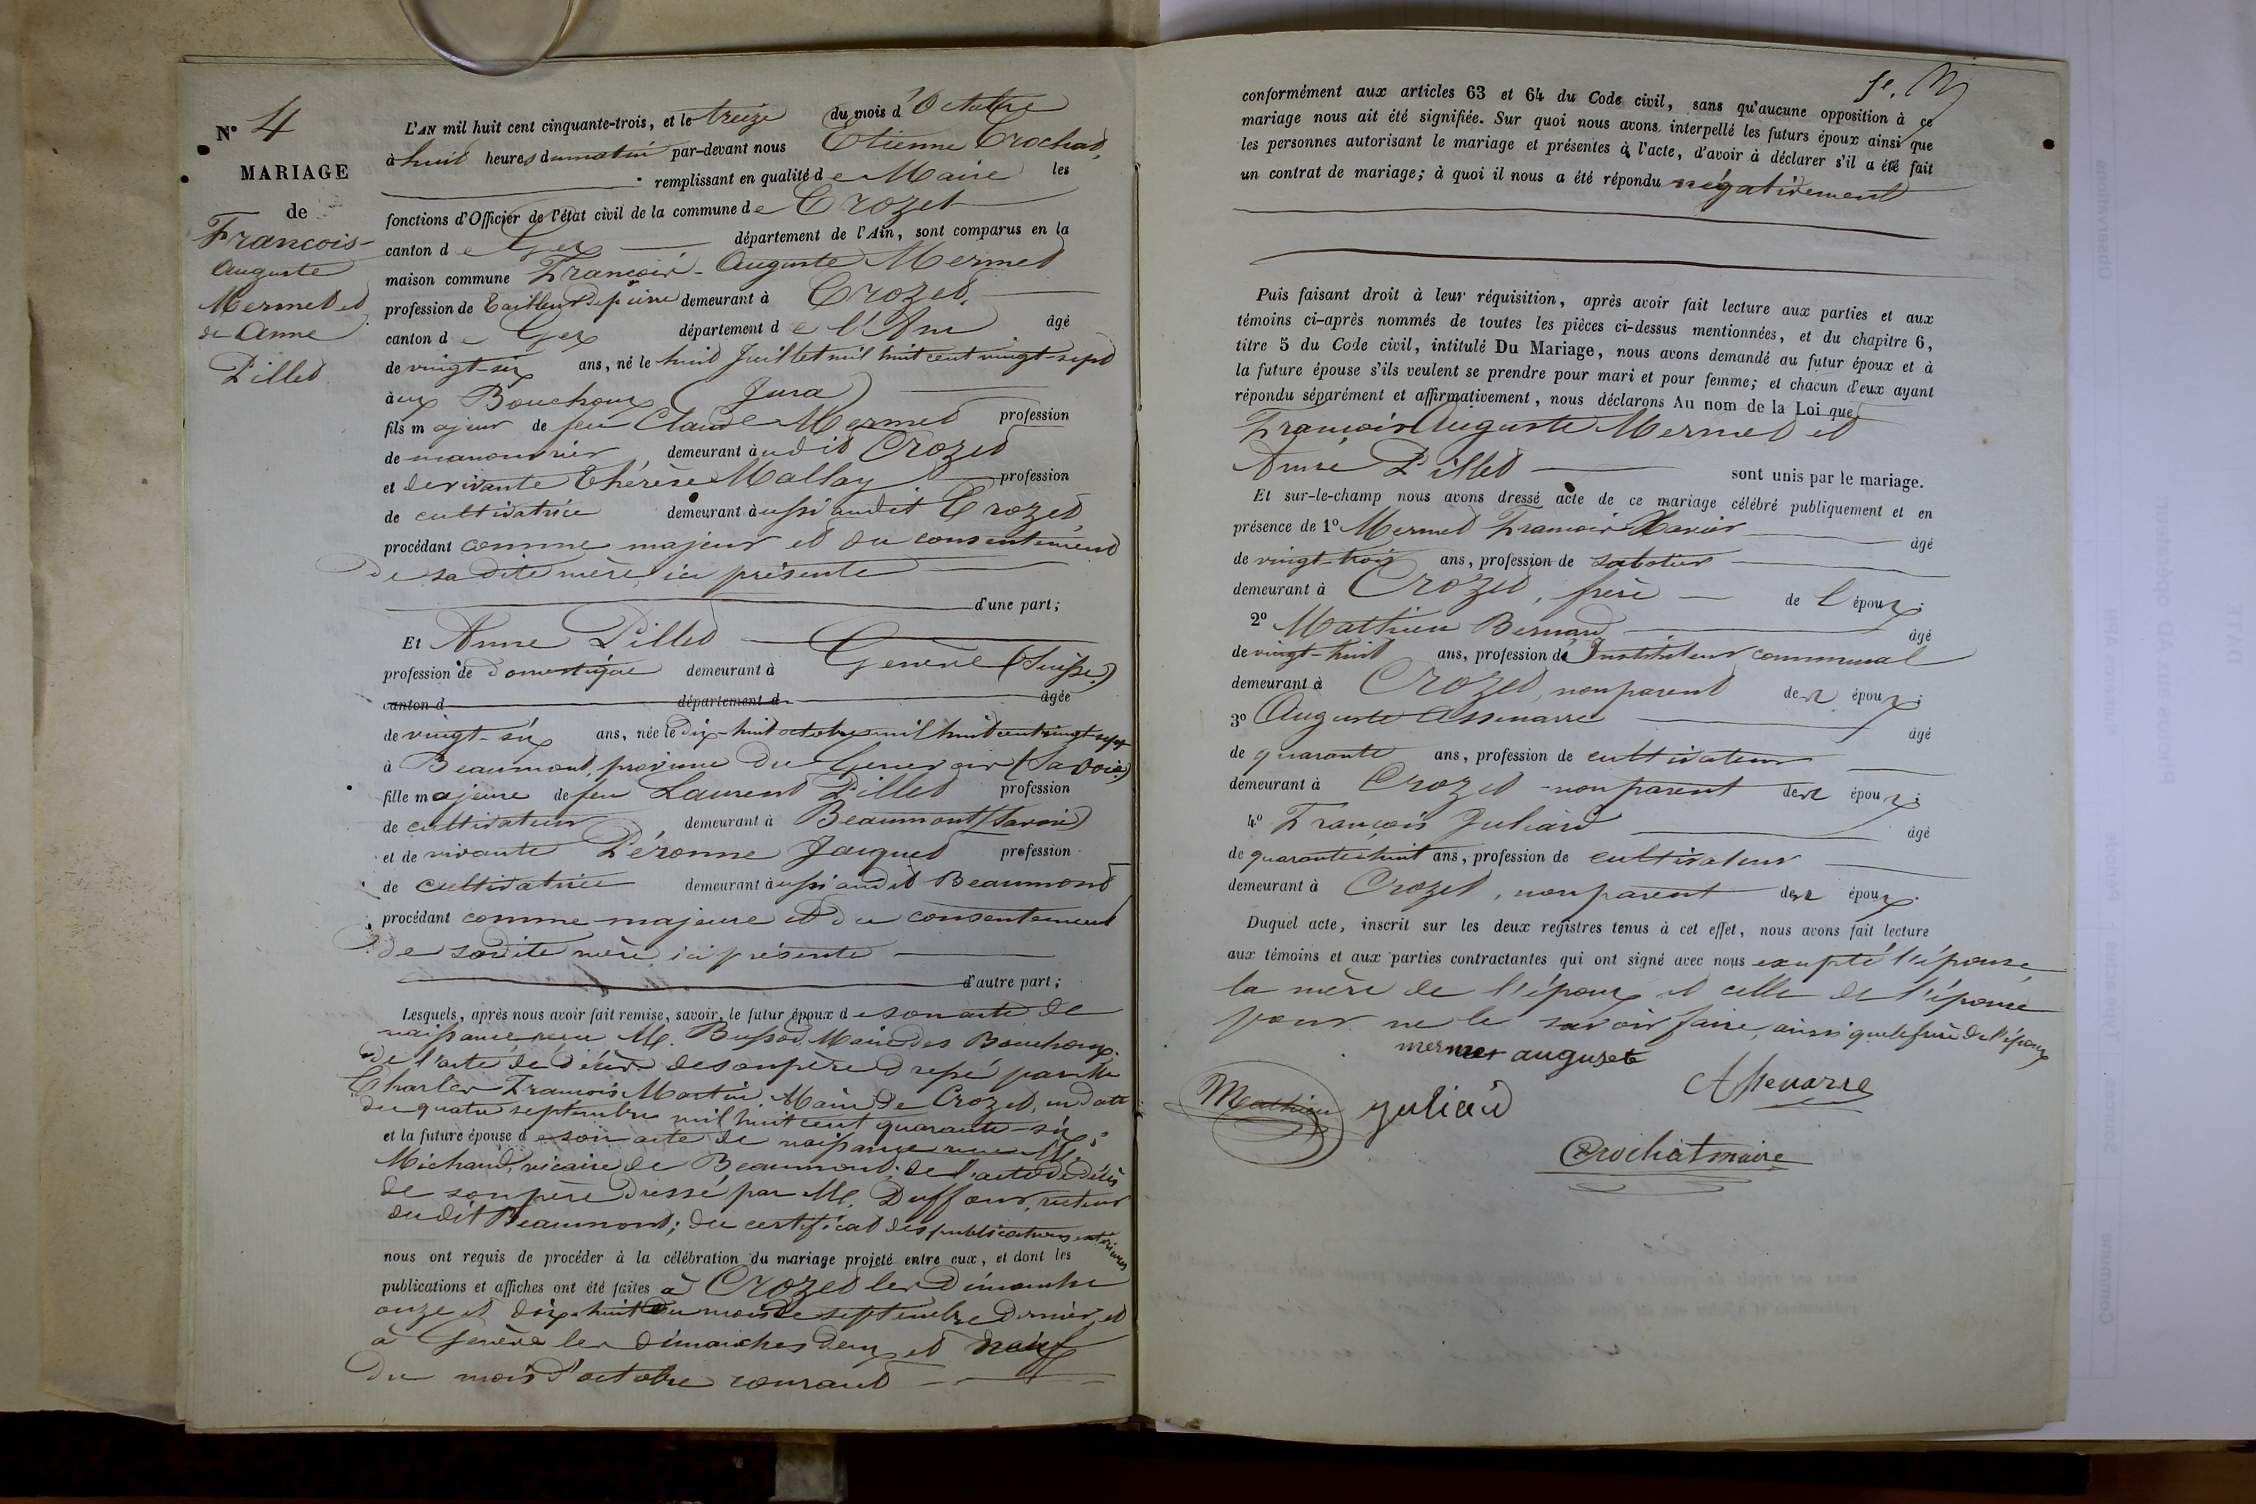 N° 4
MARIAGE
de
François-
Auguste
Mermet et
de Anne
Pillet
L'AN mil huit cent cinquante-trois, et le treize du mois d'Octobre
à huit heures du matin par-devant nous Etienne Crochat,
remplissant en qualité de Maire les
fonctions d'Officier de l'état civil de la commune de Crozet
canton de Gex département de l'Ain, sont comparus en la
maison commune François-Auguste Mermet
profession de tailleur de pierre demeurant à Crozet,
canton de Gex département de l'Ain âgé
de vingt-six ans, né le huit Juillet mil huit cent vingt-sept
aux Bouchoux (Jura)
fils majeur de feu Claude Mermet profession
de manouvrier demeurant audit Crozet
et de vivante Thérèse Mallay profession
de cultivatrice demeurant aussi audit Crozet,
procédant comme majeur et du consentement
de sa dite mère ici présente
d'une part;
Et Anne Pillet
profession de domestique demeurant à Genève (Suisse)
canton d département d âgée
de vingt-six ans, née le dix-huit octobre mil huit cent vingt-sept
à Beaumont, province du Genevois (Savoie)
fille majeure de feu Laurent Pillet profession
de cultivateur demeurant à Beaumont (Savoie)
et de vivante Péronne Jacquet profession
de cultivatrice demeurant aussi audit Beaumont
procédant comme majeure et du consentement
de sadite mère ici présente
d'autre part;
Lesquels, après nous avoir fait remise, savoir, le futur époux de son acte de
naissance reçu M. Bussod Maire des Bouchoux
de l'acte de décès de son père dressé par M.
Charles François Martin, Maire de Crozet, en date
du quatre septembre mil huit cent quarante-six;
et la future épouse de son acte de naissance reçu M.
Michaud, vicaire de Beaumont; de l'acte de décès
de son père dressé par M. Duffour, recteur
dudit Beaumont; du certificat des publications extérieures
nous ont requis de procéder à la célébration du mariage projeté entre eux, et dont les
publications et affiches ont été faites à Crozet les dimanche
onze et dix-huit du mois de septembre dernier, et
à Genève les dimanches deux et neuf
du mois d'octobre courant
conformément aux articles 63 et 64 du Code civil, sans qu'aucune opposition à ce
mariage nous ait été signifiée. Sur quoi nous avons interpellé les futurs époux ainsi que
les personnes autorisant le mariage et présentes à l'acte, d'avoir à déclarer s'il a été fait
un contrat de mariage; à quoi il nous a été répondu négativement
Puis faisant droit à leur réquisition, après avoir fait lecture aux parties et aux
témoins ci-après nommés de toutes les pièces ci-dessus mentionnées, et du chapitre 6,
titre 5 du Code civil, intitulé Du Mariage, nous avons demandé au futur époux et à
la future épouse s'ils veulent se prendre pour mari et pour femme; et chacun d'eux ayant
répondu séparément et affirmativement, nous déclarons Au nom de la Loi que
François Auguste Mermet et
Anne Pillet sont unis par le mariage.
Et sur-le-champ nous avons dressé acte de ce mariage célébré publiquement et en
présence de 1° Mermet François Xavier âgé
de vingt-trois ans, profession de sabotier
demeurant à Crozet, frère de l'époux;
2° Mathieu Bernard âgé
de vingt-huit ans, profession de Instituteur communal
demeurant à Crozet, non parent des époux;
3° Auguste Assenarre âgé
de quarante ans, profession de cultivateur
demeurant à Crozet non parent des époux;
4° François Juliard âgé
de quarante-huit ans, profession de cultivateur
demeurant à Crozet, non parent des époux.
Duquel acte, inscrit sur les deux registres tenus à cet effet, nous avons fait lecture
aux témoins et aux parties contractantes qui ont signé avec nous excepté l'épouse,
la mère de l'époux et celle de l'épouse
pour ne le savoir faire, ainsi que le frère de l'époux
mermet augusete
Mathieu
Juliard
Assenarre
Crochat maire